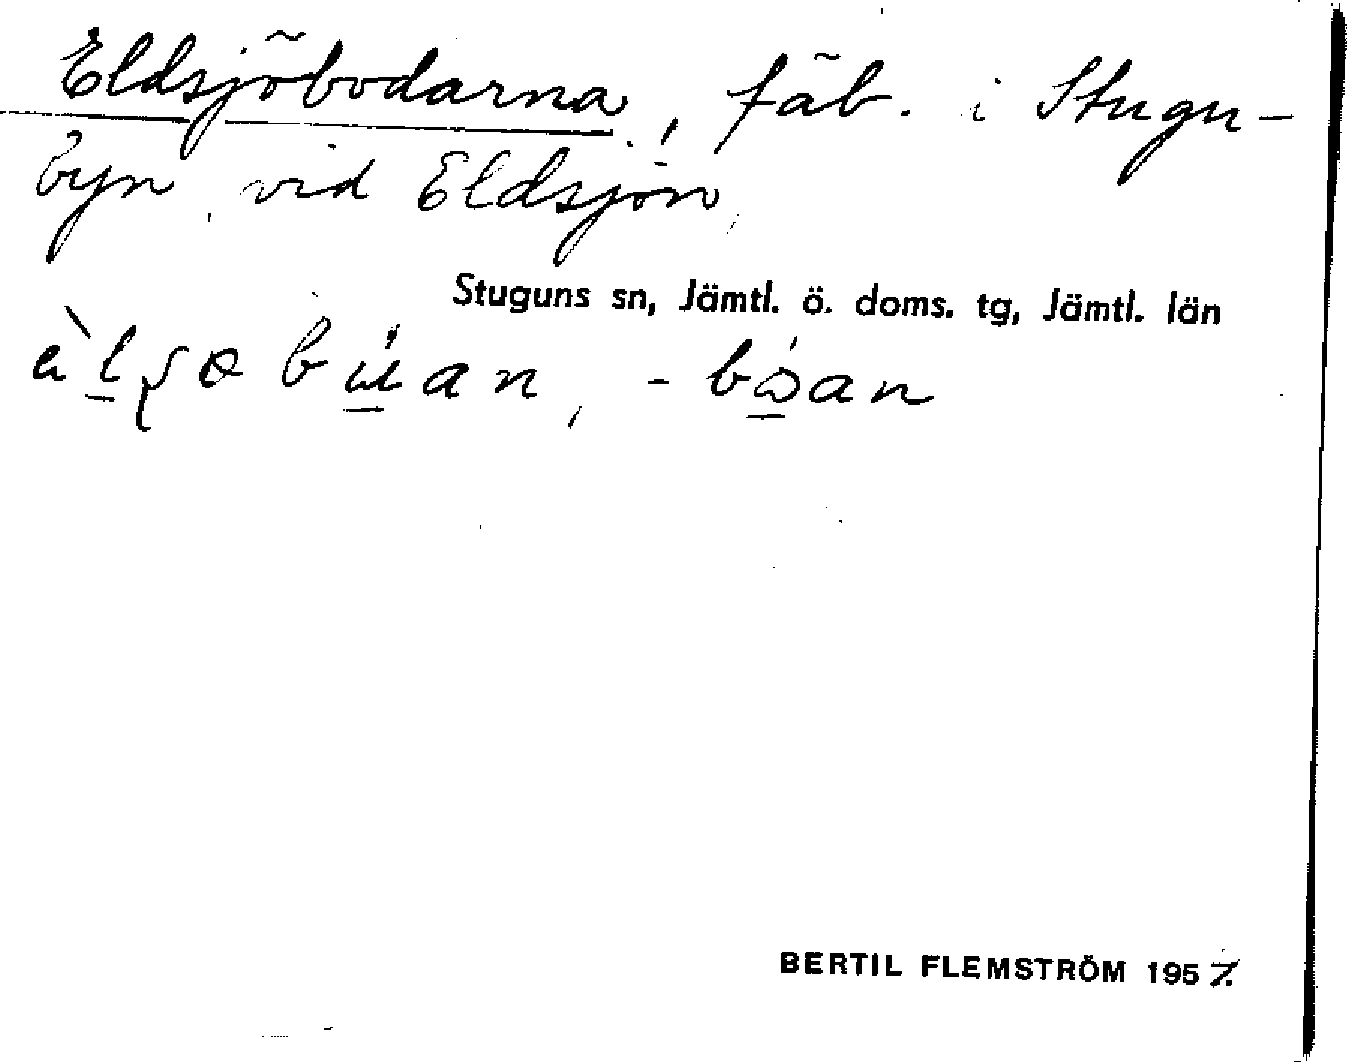 Eldsjöbodarna, fäb. i Stugu-
byn vid Eldsjön
Stuguns sn, Jämtl. ö. doms. tg, Jämtl. län
BERTIL FLEMSTRÖM 1957.